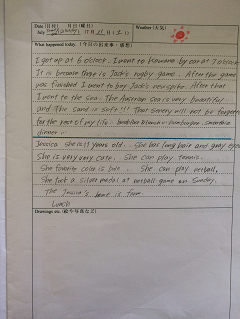 Date(日付) 月日(曜日)
Weather(天気)
July 11月 1
What happened today. (今日の出来事・感想)
I got up at 6 o'clock. I went to by car at 7 o'clock
It is because there is Jack's rugby game. After the game
was finished I went to buy Jack's After that
I went to the sea. The sea is very beautiful
and The sand is soft!!! That will not be forgot
for the rest of my life. breakfast lunch hamburger
dinner
Jessica she is 17 years old. She has long hair and gray eyes
She is very very cute. She can play tennis.
She favorite color is blue. She can play netball.
She took a silver medal at netball game on Sunday.
The Jessica's is
Lunch
Drawings etc. (絵や写真など)